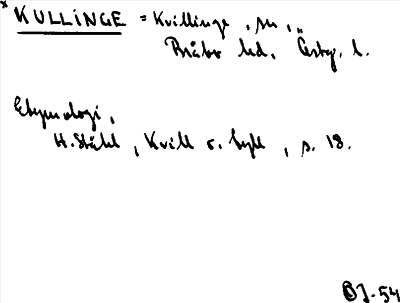 * KULLINGE = Kvillinge, sn,
Bråbo hd, Östg. l.
Etymologi,
H. Ståhl, Kvill o. Tyll, s. 18.
BJ-54